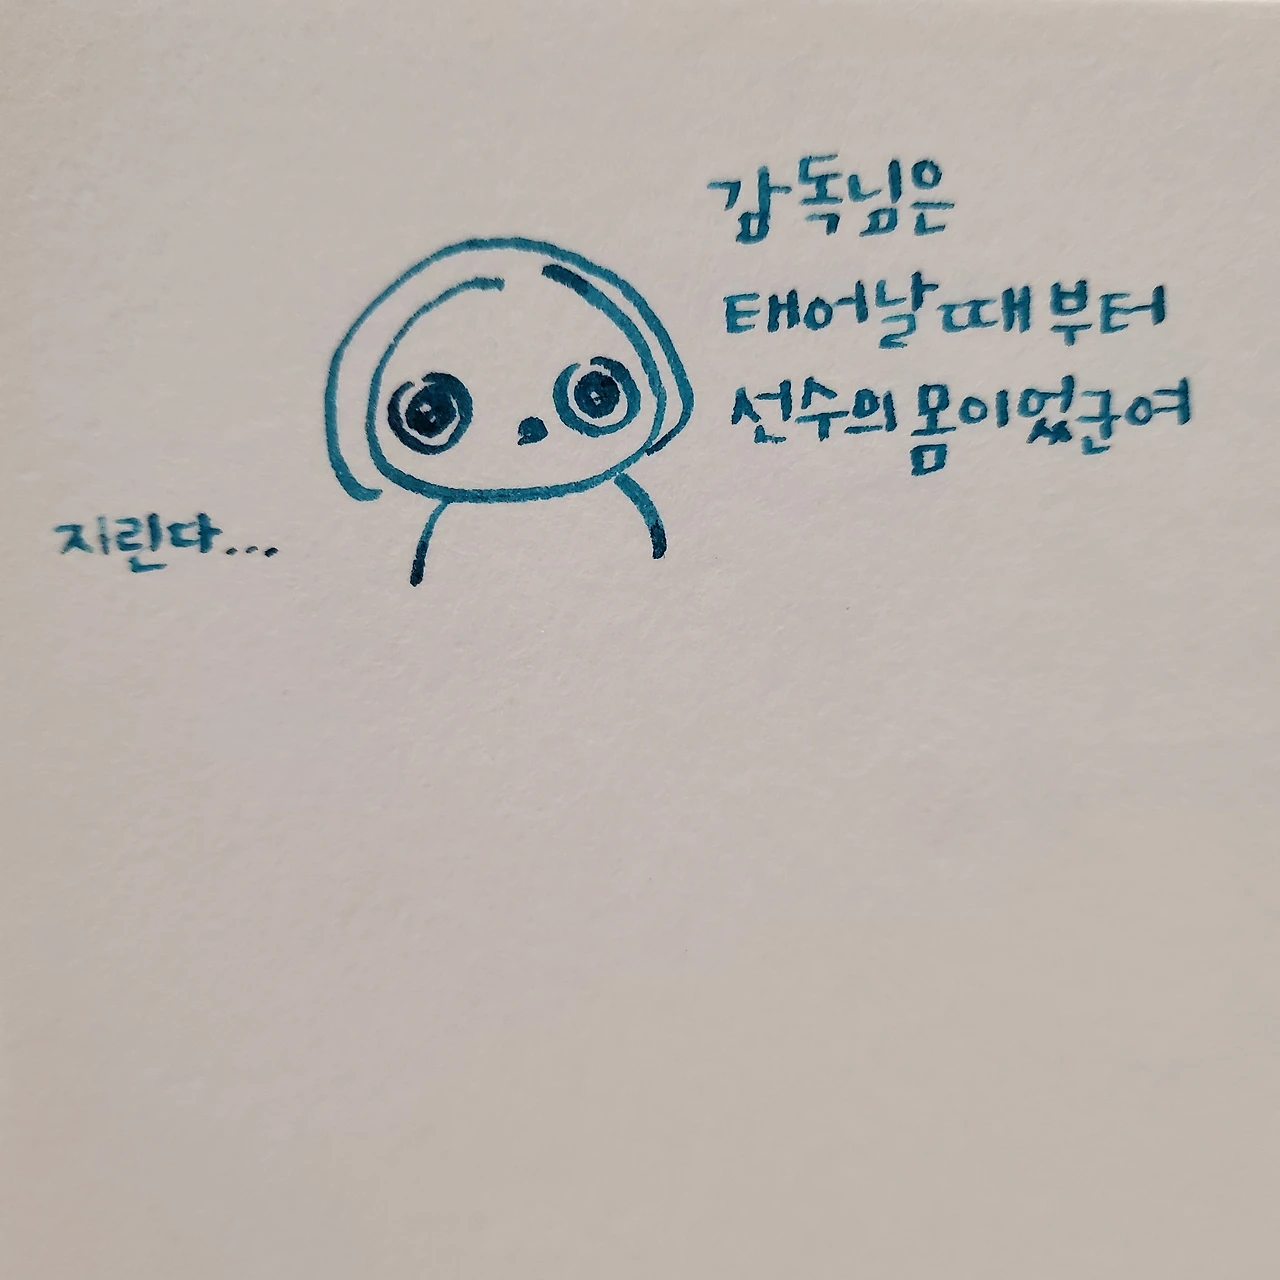 감독님은
태어날때부터
선수의몸이었군여
지린다...